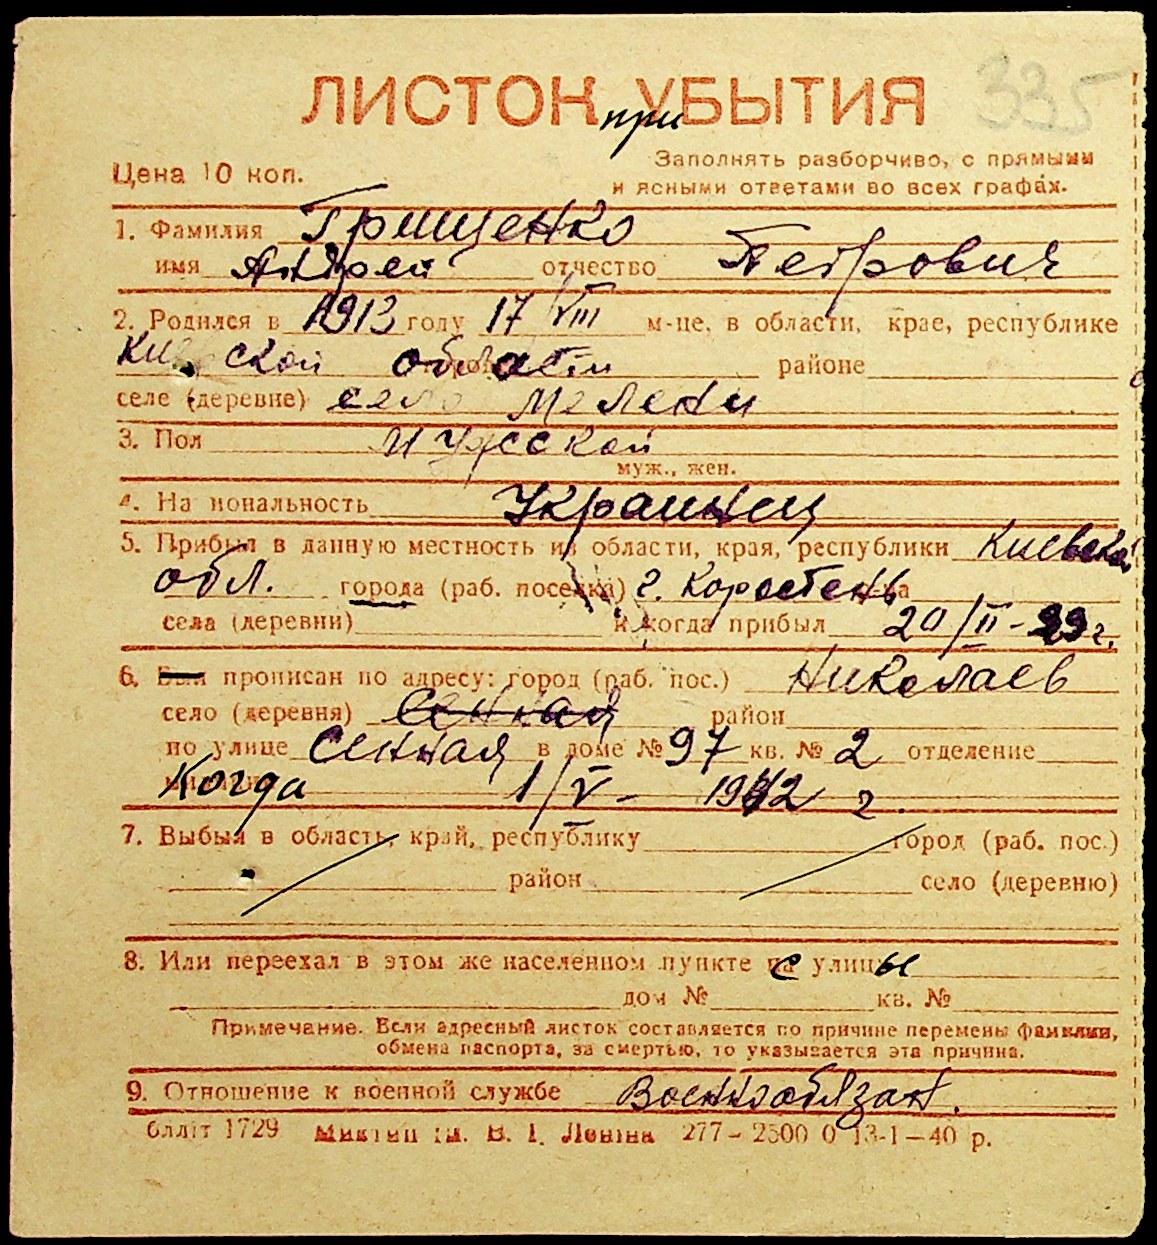 335
ЛИСТОК при УБЫТИЯ
Цена 10 коп.
Заполнять разборчиво, с прямыми
и ясными ответами во всех графах.
1. Фамилия Грищенко
имя Андрей отчество Петрович
2. Родился в 1913 году 17/VIII м-це, в области, крае, республике
Киевской области районе
селе (деревне) село Мелени
3. Пол мужской
муж., жен.
4. На иональность Украинец
5. Прибыл в данную местность из области, края, республики Киевская
обл. города (раб. поселка) г. Коростень
села (деревни) и когда прибыл 20/II-39 г.
6. Был прописан по адресу: город (раб. пос.) Николаев
село (деревня) Сенная район
по улице Сенная в доме № 97 кв. № 2 отделение
Когда 1/V - 1942 г.
7. Выбыл в область, край, республику город (раб. пос.)
район село (деревню)
8. Или переехал в этом же населенном пункте с улицы
дом № кв. №
Примечание. Если адресный листок составляется по причине перемены фамилии,
обмена паспорта, за смертью, то указывается эта причина.
9. Отношение к военной службе Военнообязан.
блліт 1729 ім. В. І. Леніна 277-2500 0 13-1-40 р.